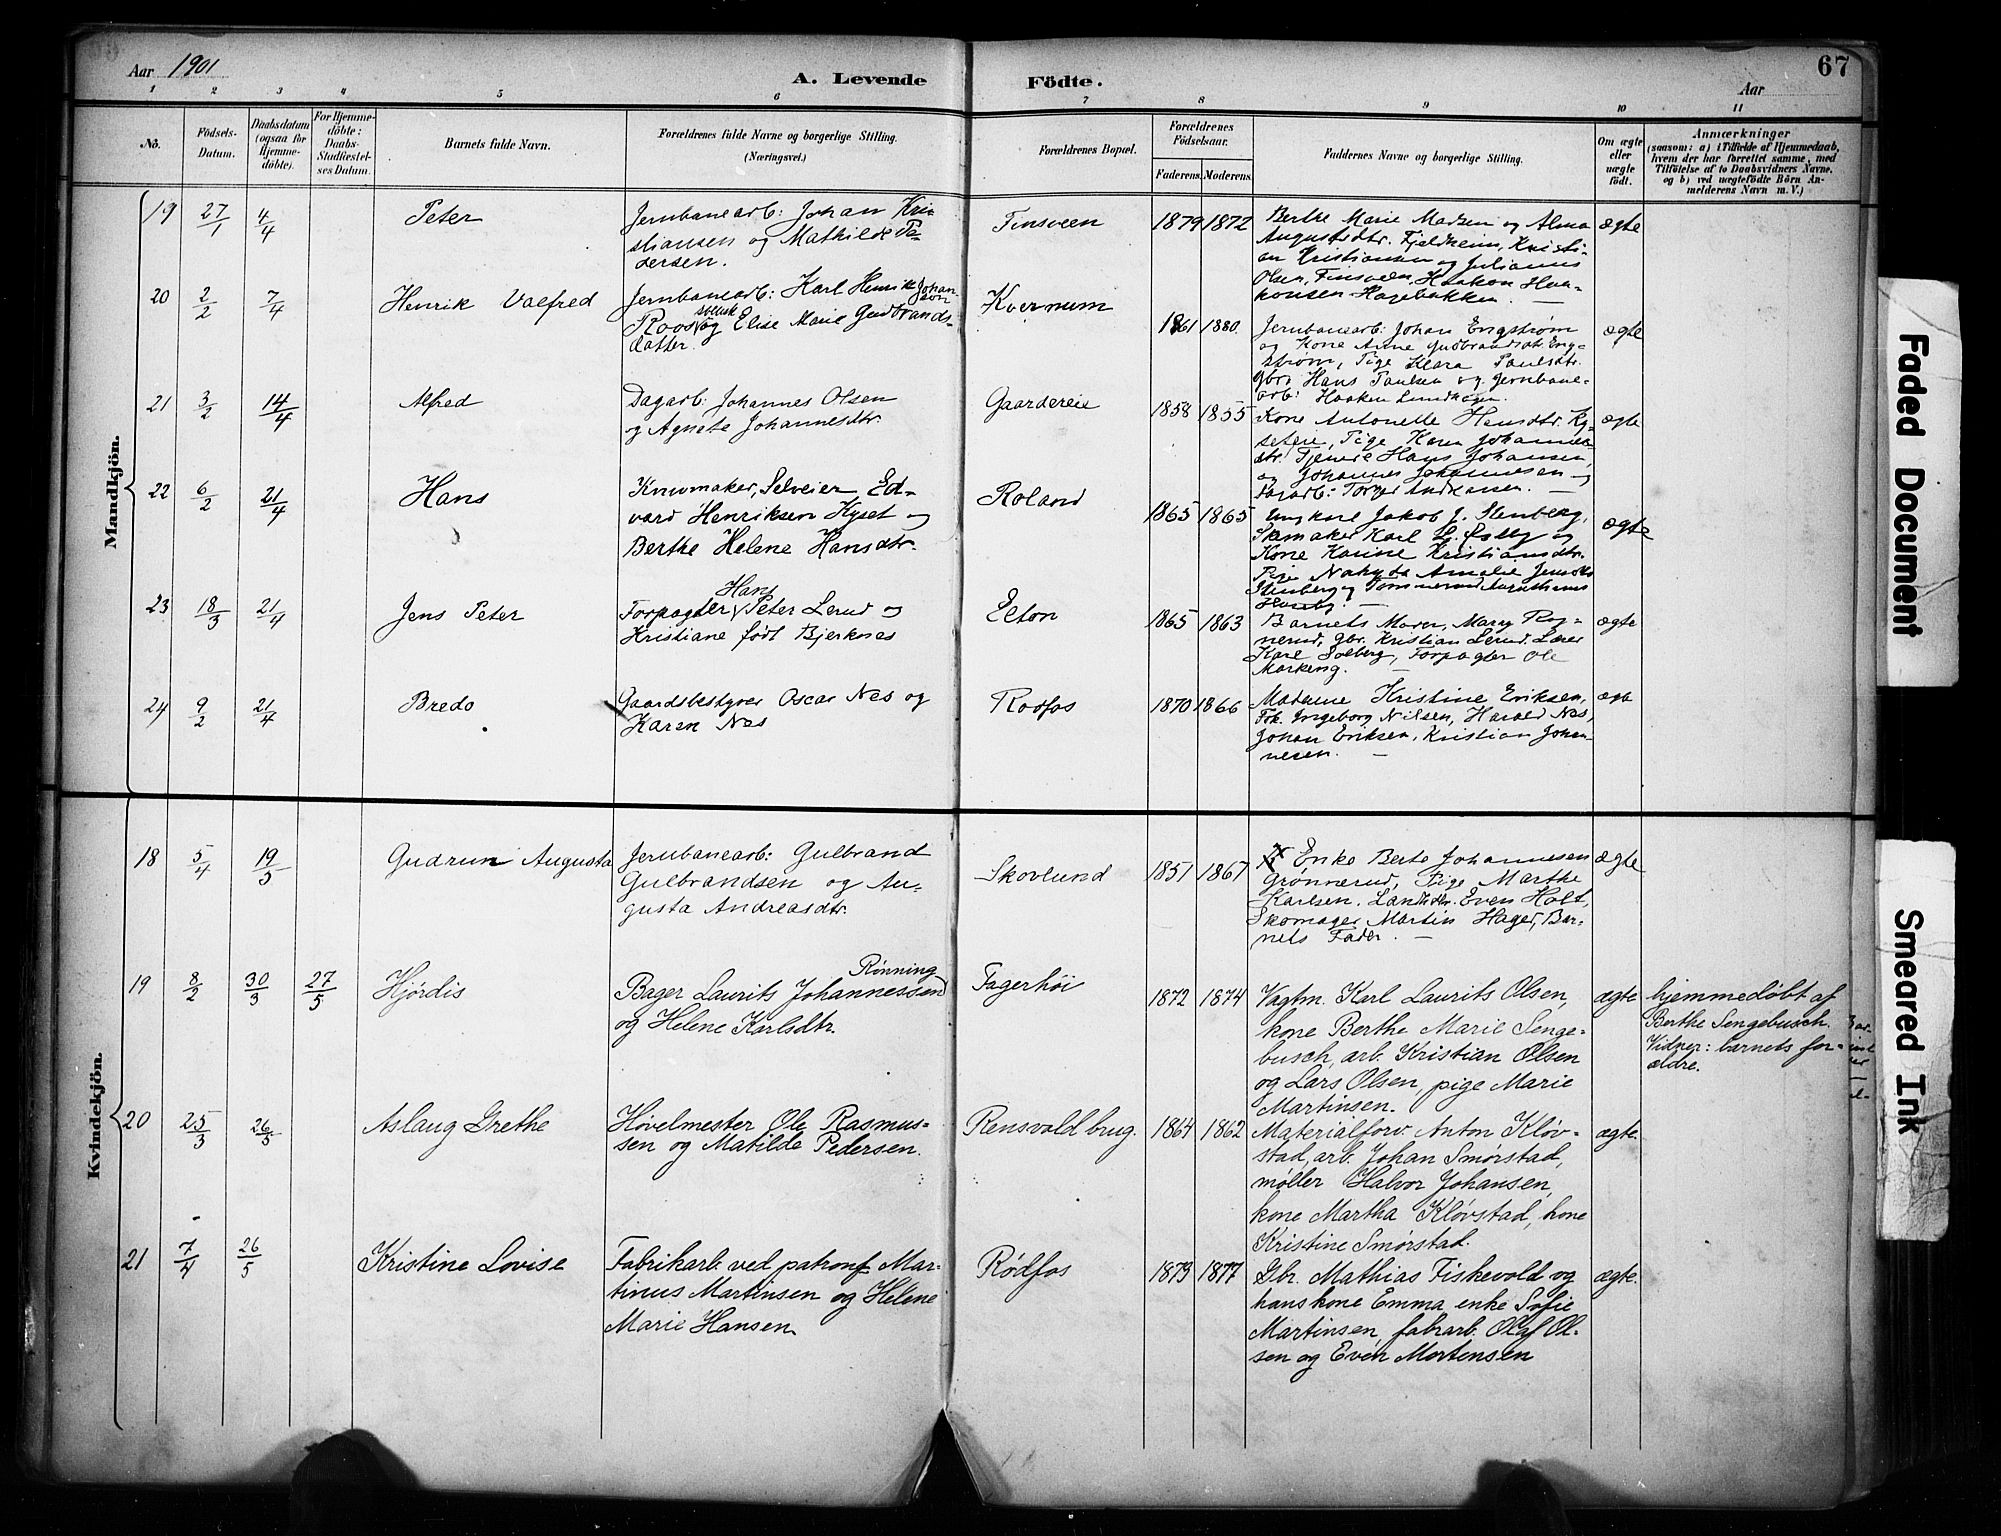 Aar 1901
A. Levende Födte.
67
Aar
1 2 3 4 5 6 7 8 9 10 11
No.
Födsels-Datum.
Daabsdatum (ogsaa for Hjemmedöbte).
For Hjemmedöbte: Daabs-Stadfæstelses Datum.
Barnets fulde Navn.
Forældrenes fulde Navne og borgerlige Stilling. (Næringsvei.)
Forældrenes Bopæl.
Forældrenes Födselsaar.
Faderens. Moderens.
Faddernes Navne og borgerlige Stilling.
Om ægte eller uægte födt.
Anmærkninger (saasom: a) i Tilfælde af Hjemmedaab, hvem der har forrettet samme, med Tilföielse af to Daabsvidners Navne, og b) ved uægtefödte Börn Anmelderens Navn m. V.)
Mandkjön.
19 27/1 4/4 Peter
Jernbanearb: Johan Kri-
stiansen og Mathilde Pe-
dersen.
Finsveen 1879 1872
Berthe Marie Madsen og Alma
Augustsdtr. Fjeldheim, Kristi-
an Kristiansen og Julianus
Olsen, Finsveen, Haakon Haa-
konsen Hagebakken. —
ægte
20 2/2 7/4 Henrik Valfred
Jernbanearb: Karl Henrik Johan-
son
Roos og Elise Marie Gudbrands-
datter.
Kvernum 1861 1880.
Jernbanearb: Johan Engstrøm
og Kone Anne Gudbrandsdt. Eng-
strøm, Pige Klara Paulsdtr.
Gbr. Hans Paulsen og Jernbane-
arb: Haaken Lundhagen.
ægte
21 3/2 14/4 Alfred
Dagarb: Johannes Olsen
og Agnete Johannesdtr.
Gaardereie 1858 1855
Kone Antonette Hansdtr. Ky-
setere, Pige Karen Johannes
dtr. Tjener Hans Johansen,
og Johannes Johannesen og
Dagarb: Torger Andersen. —
ægte
22 6/2 21/4 Hans
Knivmaker, Selveier Ed-
vard Henriksen Kyset og
Berthe Helene Hansdtr.
Roland 1865 1865
Ungkarl Jakob J. Stenberg,
Skomaker Karl L. og
Kone Karine Kristiansdtr.
Pige Amalie
Stenberg og Tømmermd.
ægte
23 18/3 21/4 Jens Peter
Hans
Forpagter Peter Lerud og
Kristiane født Bjerknæs
Elton 1865 1863
Barnets Moder, Mary Rog-
nerud, Gbr. Kristian Lerud, Lærer
Karl Solberg, Forpagter Ole
Markeng. —
ægte
24 9/2 21/4 Bredo
Gaardsbestyrer Oscar Næs og
Karen Næs
Rodfos 1870 1866
Madame Kristine Eriksen,
Frk. Ingeborg Nilsen, Harald Næs,
Johan Eriksen, Kristian Johan-
nesen. —
ægte
Kvindekjön.
18 5/4 19/5 Gudrun Augusta
Jernbanearb: Gulbrand
Gulbrandsen og Au-
gusta Andreasdtr.
Skovlund 1851 1867
Enke Berte Johannesen
Grønnerud, Pige Marthe
Karlsen. Landhdlr. Even Holt,
Skomager Martin Hager, Bar-
nets Fader. —
ægte
19 8/2 30/3 27/5 Hjørdis
Rønning
Bager Laurits Johannessen
og Helene Karlsdtr.
Fagerhøi 1872 1874
Vagtm. Karl Laurits Olsen,
kone Berthe Marie Senge-
busch, arb. Kristian Olsen
og Lars Olsen, pige Marie
Martinsen.
ægte
hjemmedøbt af
Berthe Sengebusch.
Vidner: barnets for-
ældre.
20 25/3 26/5 Aslaug Grethe
Høvelmester Ole Rasmus-
sen og Matilde Pedersen.
Rensvoldbrug. 1864 1862
Materialforv Anton Kløv-
stad, arb. Johan Smørstad,
møller Halvor Johansen,
kone Martha Kløvstad, kone
Kristine Smørstad.
ægte.
21 7/4 26/5 Kristine Lovise
Fabrikarb. ved patronf Mar-
tinus Martinsen og Helene
Marie Hansen.
Rødfos 1879 1877
Gbr. Mathias Fiskevold og
hans kone Emma, enke Sofie
Martinsen, fabrarb. Olaf Ol-
sen og Even Mortensen
ægte.
Faded Document
Smeared Ink